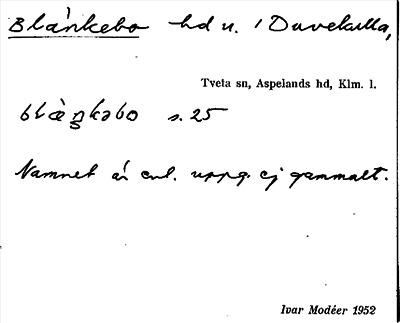 Blànkebo hd u. 1 Duvekulla,
Tveta sn, Aspelands hd, Klm. l.
blàŋkəbo s. 25
Namnet är enl. uppg. ej gammalt.
Ivar Modéer 1952